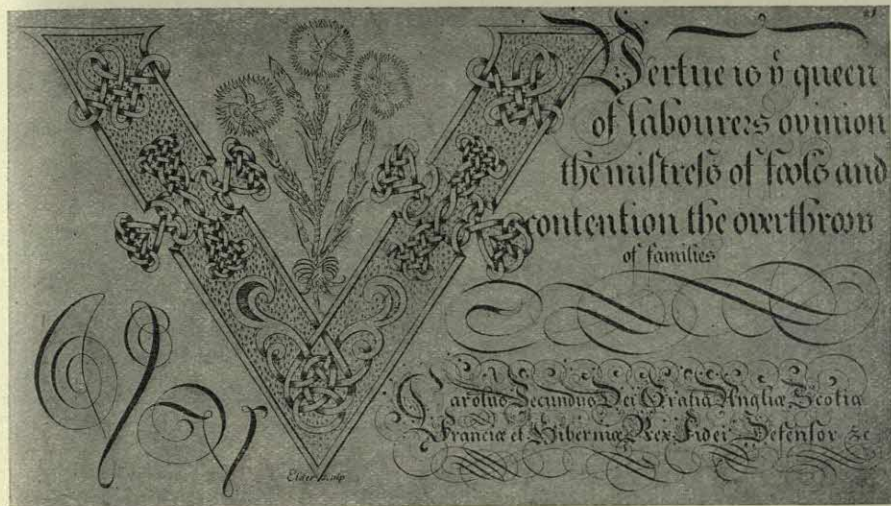 V
Vertue is ẏ queen
of labourers opinion
the miſtreſs of fools and
contention the overthrow
of families
Carolus Secundus Dei Gratia Angliæ Scotiæ
Franciæ et Hiberniæ Rex Fidei Defensor &c
Elder sculp